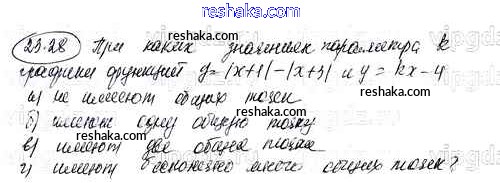 reshak.ru
23.28 При каких значениях параметра k
графики функций y=|x+1|-|x+3| и y=kx-4
а) не имеют общих точек
б) имеют одну общую точку
в) имеют две общие точки
г) имеют бесконечно много общих точек?
reshaka.ru